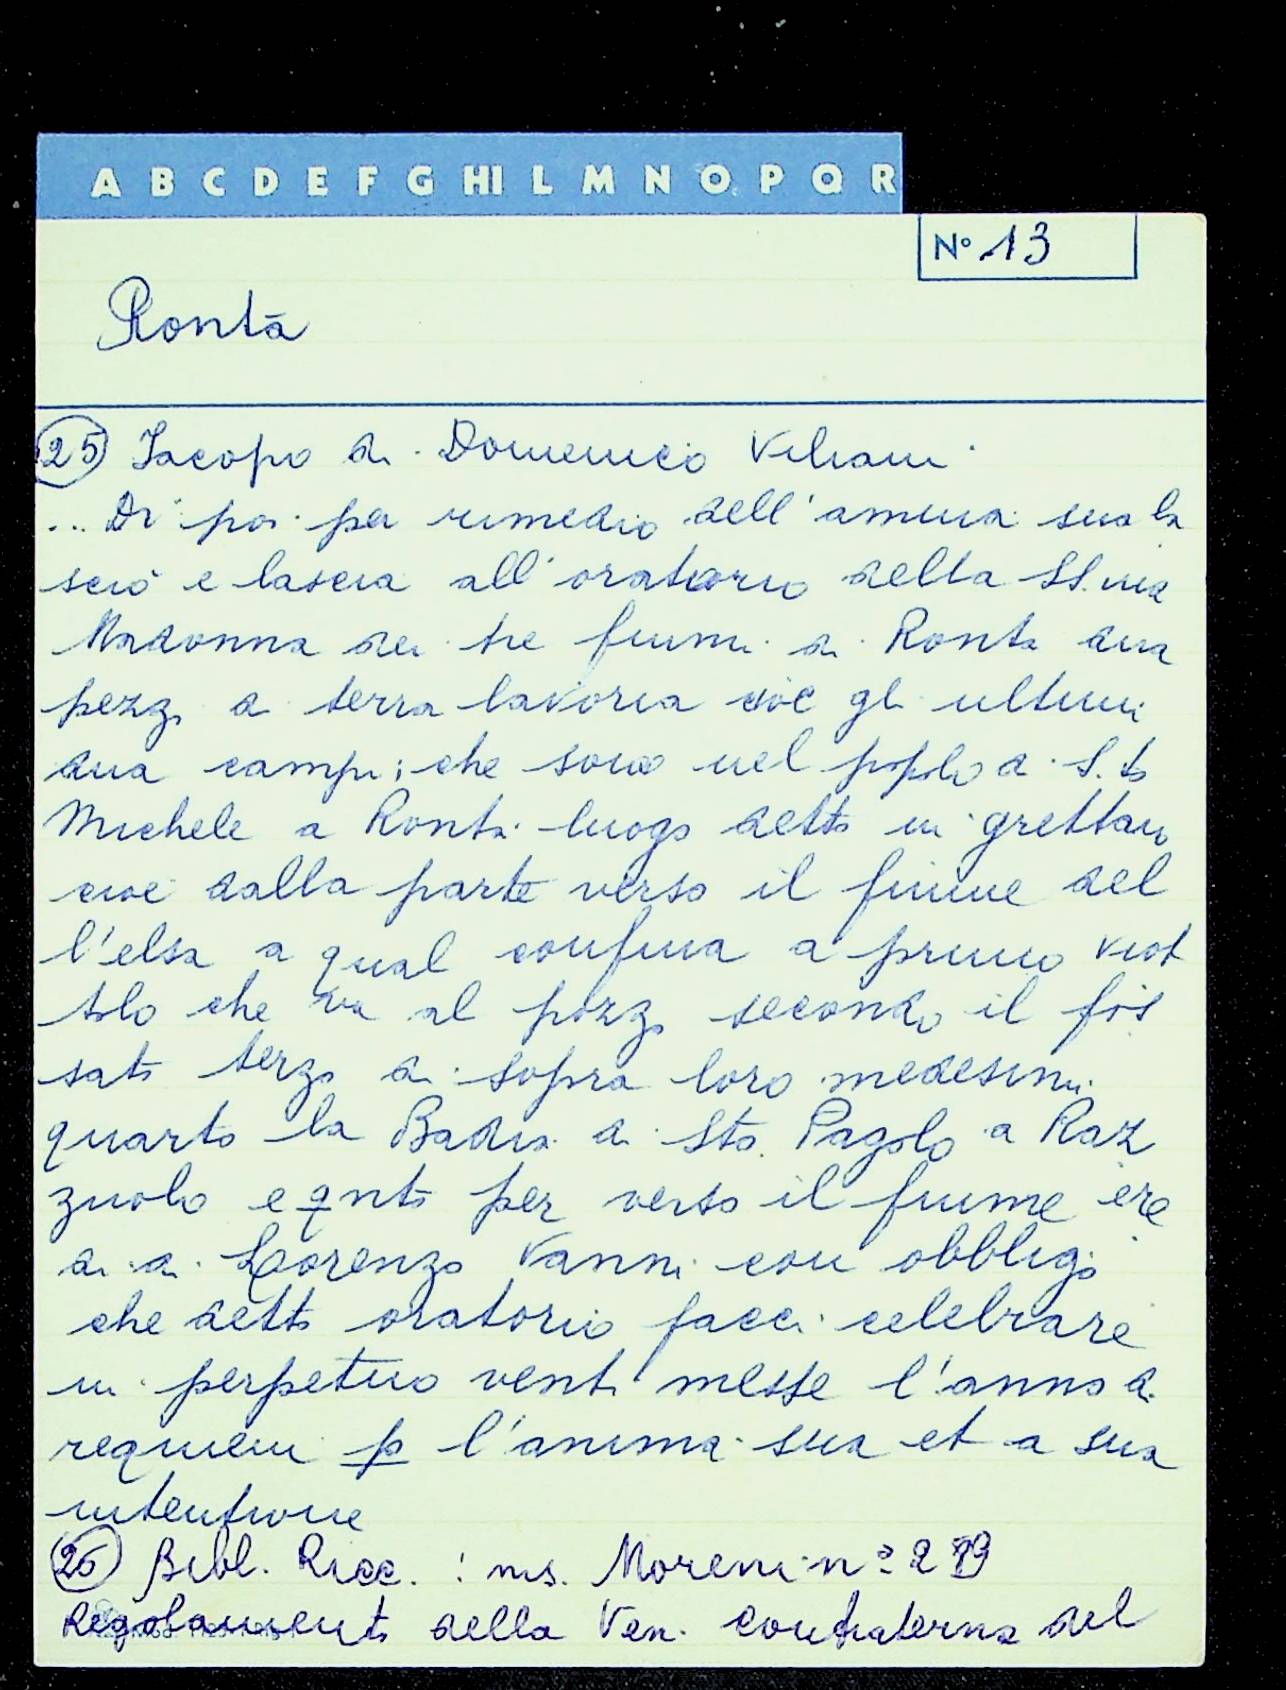 A B C D E F G HI L M N O P Q R
N° 13
Ronta
25 Jacopo di Domenico Viliani
... Di poi per rimedio dell'anima sua la
sciò e lascia all'oratorio della SS.ma
Madonna dei tre fiumi di Ronta dua
pezzi di terra lavoria cioè gli ultimi
dua campi; che sono nel popolo di S.to
Michele a Ronta luogo detto in grettaio
cioè dalla parte verso il fiume del
l'elsa a qual confina a primo viot
tolo che va al pozzo secondo il fos
sato terzo di sopra loro medesimi
quarto la Badia di Sto. Pagolo a Raz
zuolo e qnto per verso il fiume ere
di di Lorenzo Vanni con obbligo
che detto oratorio facci celebrare
in perpetuo venti messe l'anno di
requiem p l'anima sua et a sua
intentione
26 Bibl. Ricc. : ms. Moreni n°
Regolamento della Ven. Confraterna del